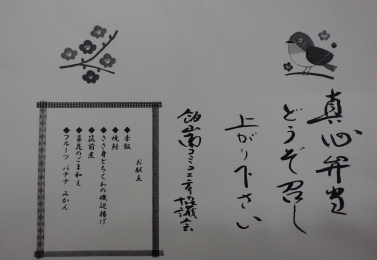 真心弁当
どうぞ召し
上がり下さい
飯山南コミュニティ協議会
お献立
◆赤飯
◆焼鮭
◆ささ身とちくわの磯辺揚げ
◆筑前煮
◆菜花のごま和え
◆フルーツ バナナ みかん